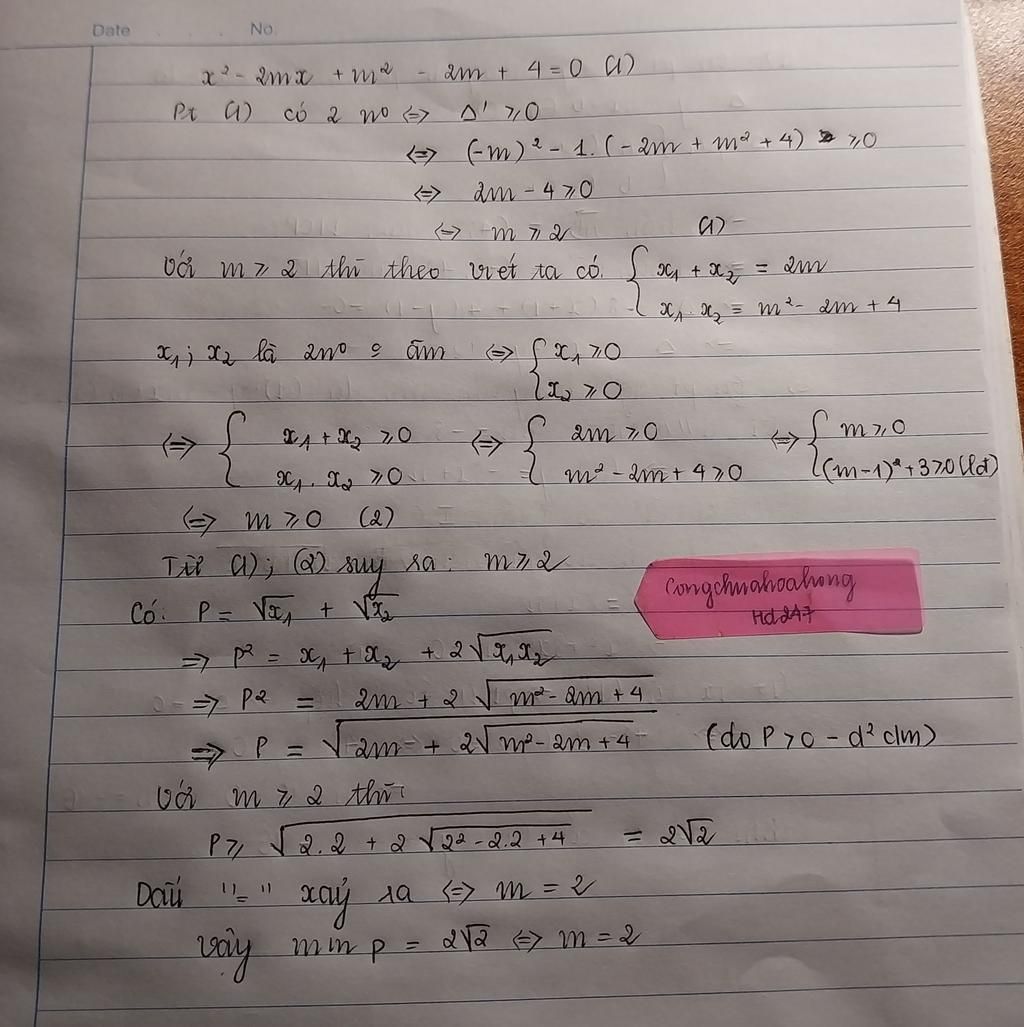 Date . . . No.
x² - 2mx + m² - 2m + 4 = 0 (1)
Pt (1) có 2 no ⇔ Δ' ⩾ 0
⇔ (-m)² - 1. (-2m + m² + 4) ⩾ 0
⇔ 2m - 4 ⩾ 0
⇔ m ⩾ 2 (1)
Với m ⩾ 2 thì theo viét ta có { x₁ + x₂ = 2m
x₁ . x₂ = m² - 2m + 4
x₁; x₂ là 2no o âm ⇔ { x₁ ⩾ 0
x₂ ⩾ 0
⇔ { x₁ + x₂ ⩾ 0 ⇔ { 2m ⩾ 0 ⇔ { m ⩾ 0
x₁ . x₂ ⩾ 0 m² - 2m + 4 ⩾ 0 (m-1)² + 3 ⩾ 0 (lđ)
⇔ m ⩾ 0 (2)
Từ (1); (2) suy ra: m ⩾ 2
Congchuahoahong
Hd247
Có: P = √x₁ + √x₂
⇒ P² = x₁ + x₂ + 2√(x₁x₂)
⇒ P² = 2m + 2√(m² - 2m + 4)
⇒ P = √(2m + 2√(m² - 2m + 4)) (do P > 0 - d² clm)
Với m ⩾ 2 thì:
P ⩾ √(2.2 + 2√(2² - 2.2 + 4)) = 2√2
Dấu "=" xảy ra ⇔ m = 2
vậy min p = 2√2 ⇔ m = 2